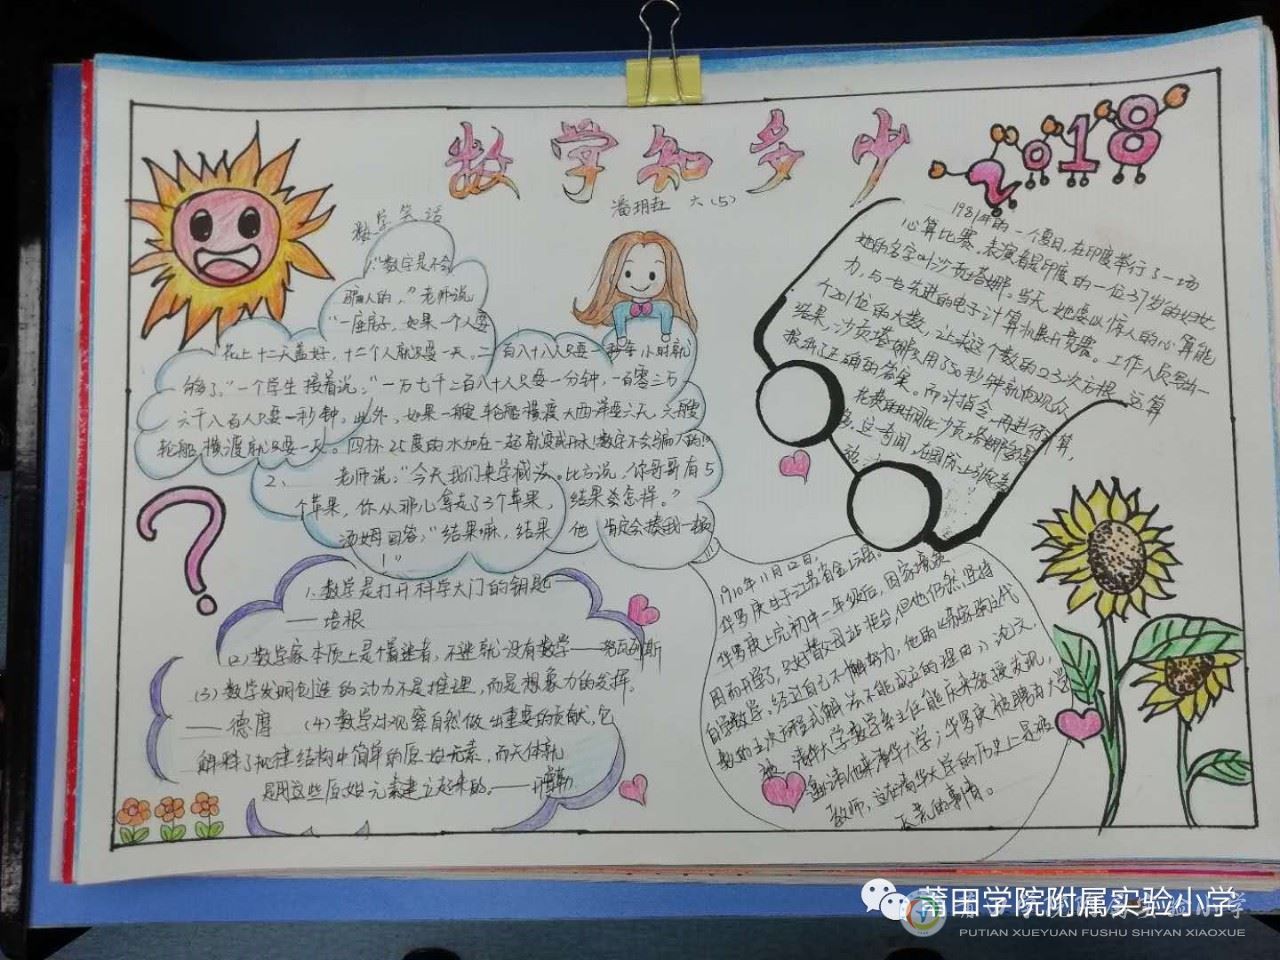 数学知多少
2018
潘玥 六(5)
数学笑话
1."数字是不会
骗人的,"老师说
"一座房子,如果一个人要
花上十二天盖好,十二个人就只要一天。二百八十八人只要一秒每小时就
够了。"一个学生接着说:"一万七千二百八十人只要一分钟,一百零三万
六千八百人只要一秒钟。此外,如果一艘轮船横渡大西洋要六天,六艘
轮船横渡就只要一天。四杯25度的水加在一起就变成开水!数字不会骗人的!"
2、老师说:"今天我们来学减法。比方说,你哥哥有5
个苹果,你从那儿拿走了3个苹果,结果会怎样。"
汤姆回答:"结果嘛,结果他肯定会揍我一顿
!"
1.数学是打开科学大门的钥匙
——培根
(2)数学家本质上是个着迷者,不迷就没有数学——努瓦列斯
(3)数学发明创造的动力不是推理,而是想象力的发挥。
——德摩 (4)数学对观察自然做出重要的贡献,它
解释了规律结构中简单的原始元素,而天体就
是用这些原始元素建立起来的。——开普勒
1981年的一个夏日,在印度举行了一场
心算比赛。表演者是印度的一位37岁的妇女,
她的名字叫沙贡塔娜。当天,她要以惊人的心算能
力,与一台先进的电子计算机展开竞赛。工作人员写出一
个201位的大数,让求这个数的23次方根。运算
结果,沙贡塔娜只用了50秒钟就向观众
报出了正确的答案。而计
1910年11月12日,
华罗庚生于江苏省金坛县。
华罗庚上完初中一年级后,因家境贫
困而失学了,只好替父母站柜台,但他仍然坚持
自学数学。经过自己不懈努力,他的《苏家驹之代
数的五次方程式解法不能成立的理由》论文,
被清华大学数学系主任熊庆来教授发现,
邀请他来清华大学;华罗庚被聘为大学
教师,这在清华大学的历史上是破
天荒的事情。
莆田学院附属实验小学
PUTIAN XUEYUAN FUSHU SHIYAN XIAOXUE